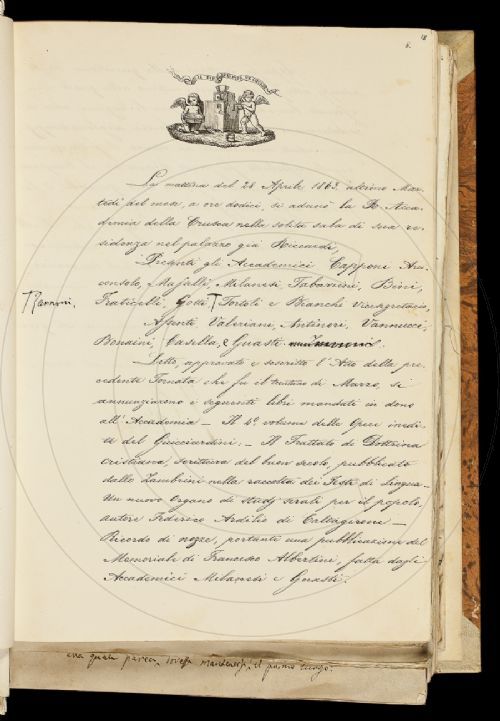 18
6.
La mattina del 28 Aprile 1863. ultimo Mar-
tedì del mese, a ore dodici, si adunò la R. Acca-
demia della Crusca nella solita sala di sua re-
sidenza nel palazzo già Riccardi,
Presenti gli Accademici Capponi Arci-
consolo, Mayalli, Milanesi Tabarrini, Bini,
Fraticelli, Gotti Tortoli e Bianchi Vicesegretario,
Assenti Valeriani, Antinori, Vannucci,
Bonaini, Casella, e Guasti
Letto, approvato e soscritto l'Atto della pre-
cedente Tornata che fu il trentuno di Marzo, si
annunziarono i seguenti libri mandati in dono
all'Accademia — Il 4º volume delle Opere inedi-
te del Guicciardini. — Il Trattato di Dottrina
cristiana, scrittura del buon secolo, pubblicato
dallo Zambrini nella raccolta dei Testi di lingua —
Un nuovo Organo di studj serali per il popolo.
autore Federico Ardilio di Caltagirone —
Ricordo di nozze, portante una pubblicazione del
Memoriale di Francesco Albertini, fatta dagli
Accademici Milanesi e Guasti.
il primo luogo.